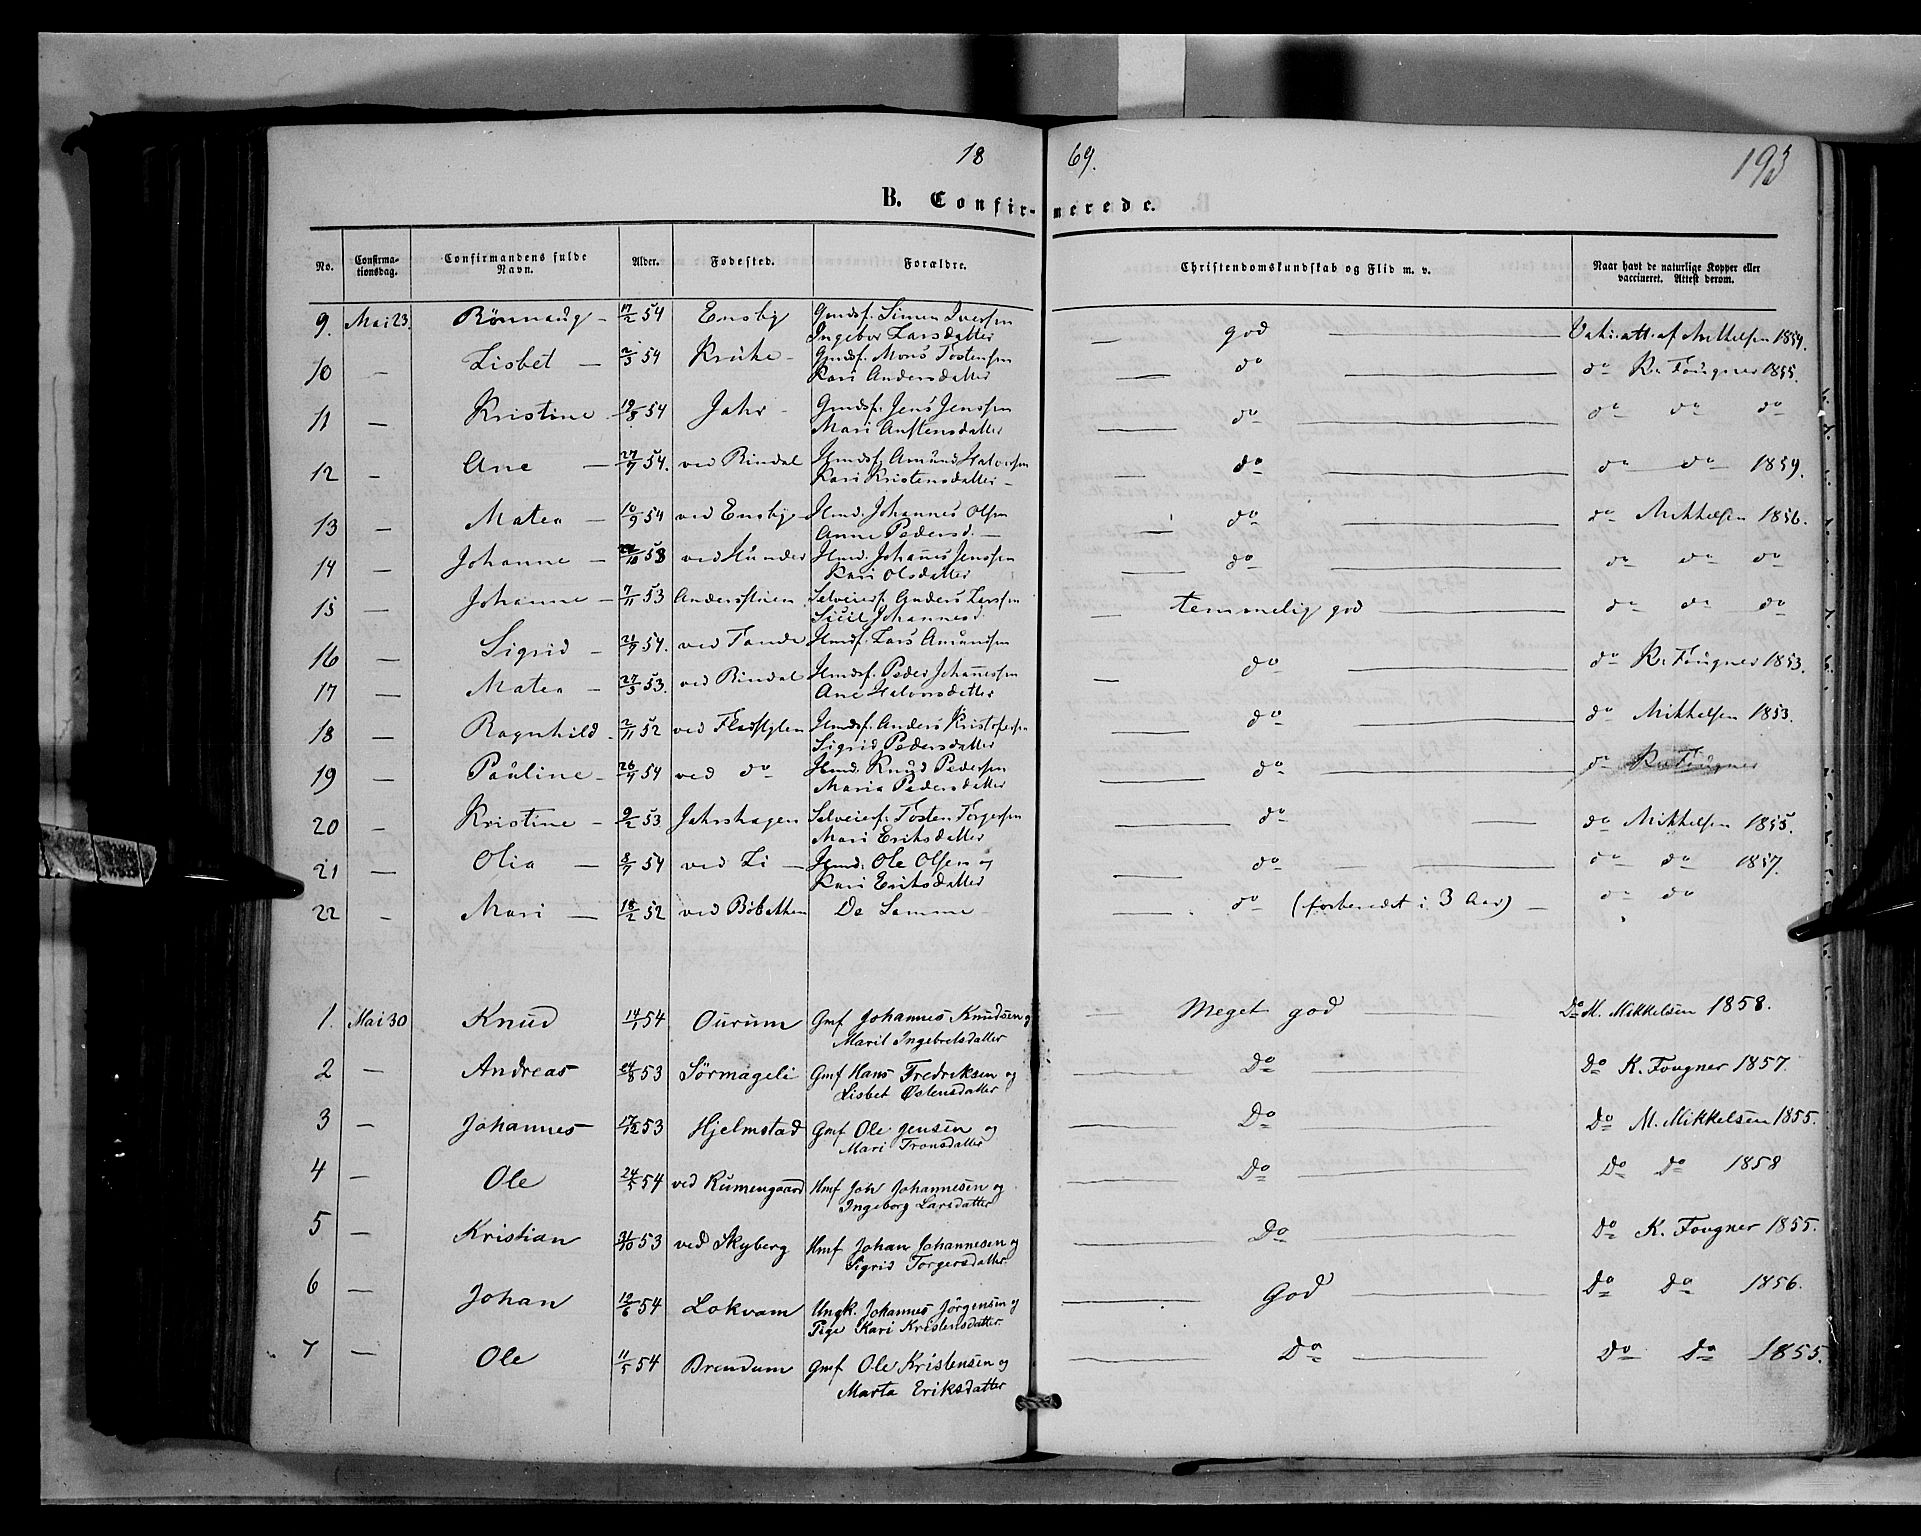 18 69. 193
B. Confirmerede.
No. Confirmationsdag. Confirmandens fulde Navn. Alder. Fødested. Forældre. Christendomskundskab og Flid m. v. Naar havt de naturlige Kopper eller vaccineret. Attest derom.
9. Mai 23. Rönnaug – 17/2 54 Ensby Gmdsf. Simen Iversen — god — Vak: att: af Mikkelsen 1854.
Ingebor Larsdatter
10 — Lisbet — 2/3 54 Kruke – Gmdsf. Mons Tostensen — do — do K. Fougner 1855.
Kari Andersdatter
11 — Kristine – 19/3 54 Jahr – Gmdsf. Jens Jenssen — do — do do do
Mari Anstensdatter
12 – Ane — 27/7 54. ved Rindal Hmdsf. Amund Halvorsen — do — do do 1859.
Kari Kristensdatter –
13 — Matea — 10/9 54 ved Ensby Hmd. Johannes Olsen — do — do Mikkelsen 1856.
Anne Pedersd. —
14 — Johanne – 53 ved Hunder Hmd. Johanes Jenssen — do — do do do
Kari Olsdatter
15 — Johanne — 7/11 53 Anderstuen Selveierf. Anders Larssen — temmelig god — do do do
Sicil Johannesd.
16 — Sigrid – 21/7 54. ved Tande Hmdsf. Lars Amundsen
do — do K. Fougner 1853.
17 — Matea – 27/3 53. ved Rindal Hmdsf. Peder Johanessen —
Ane Halvorsdatter
18 — Ragnhild – 2/11 52 ved Hmdsf. Anders Kristofersen — do — do Mikkelsen 1853.
Sigrid Pedersdatter
19 — Pauline – 26/7 54 ved do Hmd. Knud Pedersen — do — do K. Fougner
Maria Pedersdatter
20 — Kristine – 9/2 53 Jahrshagen Selveierf. Tosten Torgersen — do — do Mikkelsen 1855.
Mari Eriksdatter
21 — Olia — 8/7 54 ved Li — Hmd. Ole Olsen og — do — do do 1857.
Kari Eriksdatter
22 – Mari — 18/2 52 ved De Samme – — do (forberedet i 3 Aar) — do do
1. Mai 30 Knud 14/1 54 Ourum Gmf Johannes Knudsen og Meget god — Do M. Mikkelsen 1858.
Marit Ingebretsdatter
2 — Andreas 24/8 53 Sörmageli Gmf Hans Fredriksen og — Do — Do K. Fougner 1857.
Lisbet Østensdatter
3 — Johannes 17/12 53 Hjelmstad Gmf Ole Jensen og — Do — Do M. Mikkelsen 1855.
Mari Tronsdatter
4 — Ole 24/5 54 ved Rumengaard Hmf Joh Johannesen og — Do — Do Do 1858
Ingeborg Larsdatter
5 — Kristian 31/10 53 ved Skyberg Hmf Johan Johannesen og — Do — Do K. Fougner 1855.
Sigrid Torgersdatter
6 — Johan 12/6 54 Lokvam Ungk. Johannes Jörgensen og — God — Do Do 1856.
Pige Kari Kristensdatter
7 — Ole 11/5 54 Brendum Gmf Ole Kristensen og — Do — Do Do 1855.
Marta Eriksdatter